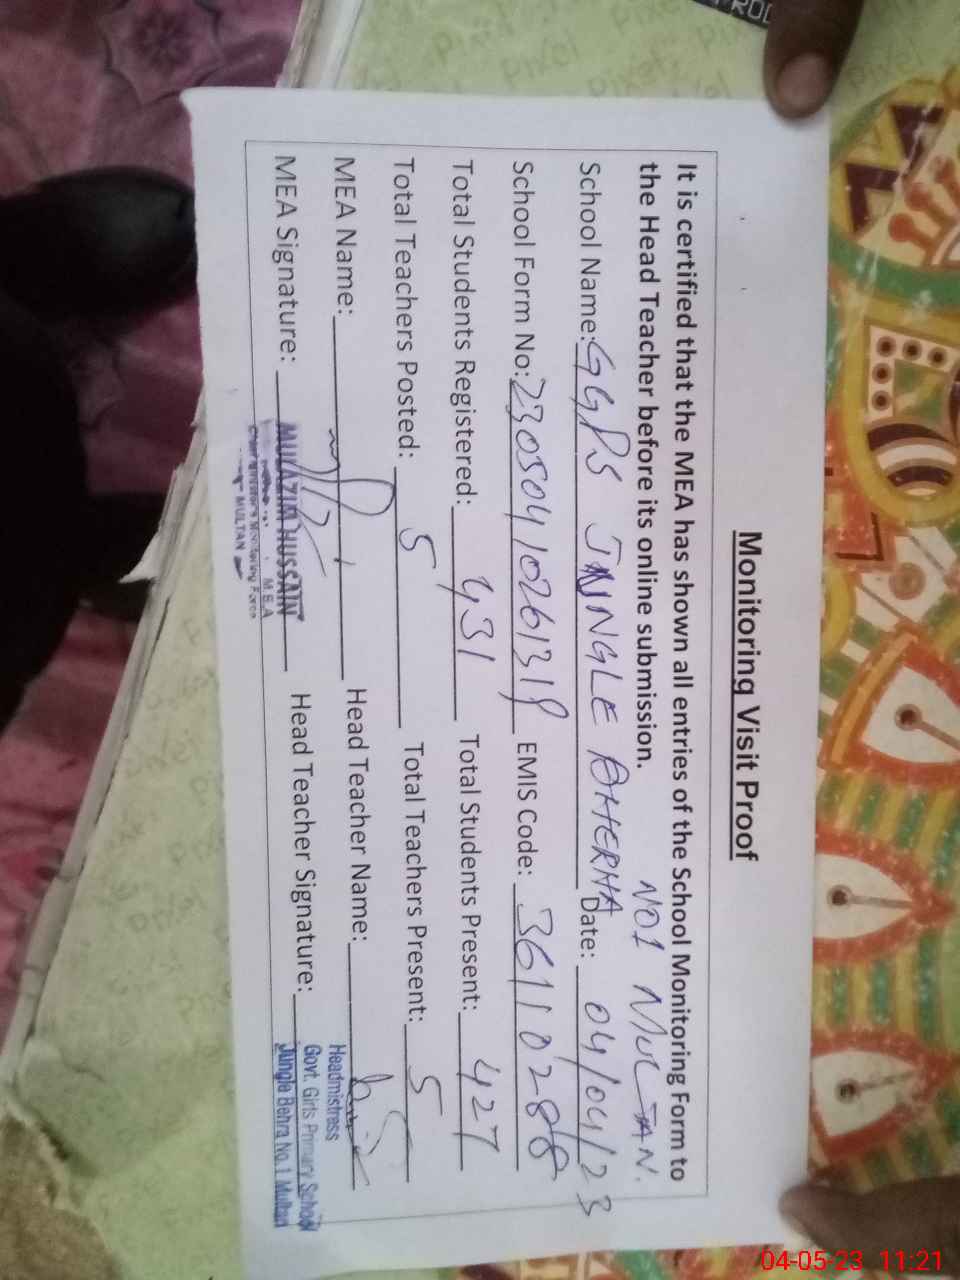 Monitoring Visit Proof
It is certified that the MEA has shown all entries of the School Monitoring Form to
the Head Teacher before its online submission.
NO1 MULTAN.
School Name: GGPS JNGLE BHERHA Date: 04/04/23
School Form No: 230504102613 EMIS Code: 36110288
Total Students Registered: 431 Total Students Present: 427
Total Teachers Posted: 5 Total Teachers Present: 5
MEA Name: Head Teacher Name:
MEA Signature: Head Teacher Signature:
MULAZIM HUSSAIN
M.E.A
Monitoring Force
MULTAN
Headmistress
Govt. Girls Primary School
Jungle Behra No.1 Multan
Pixel
04-05-23 11:21